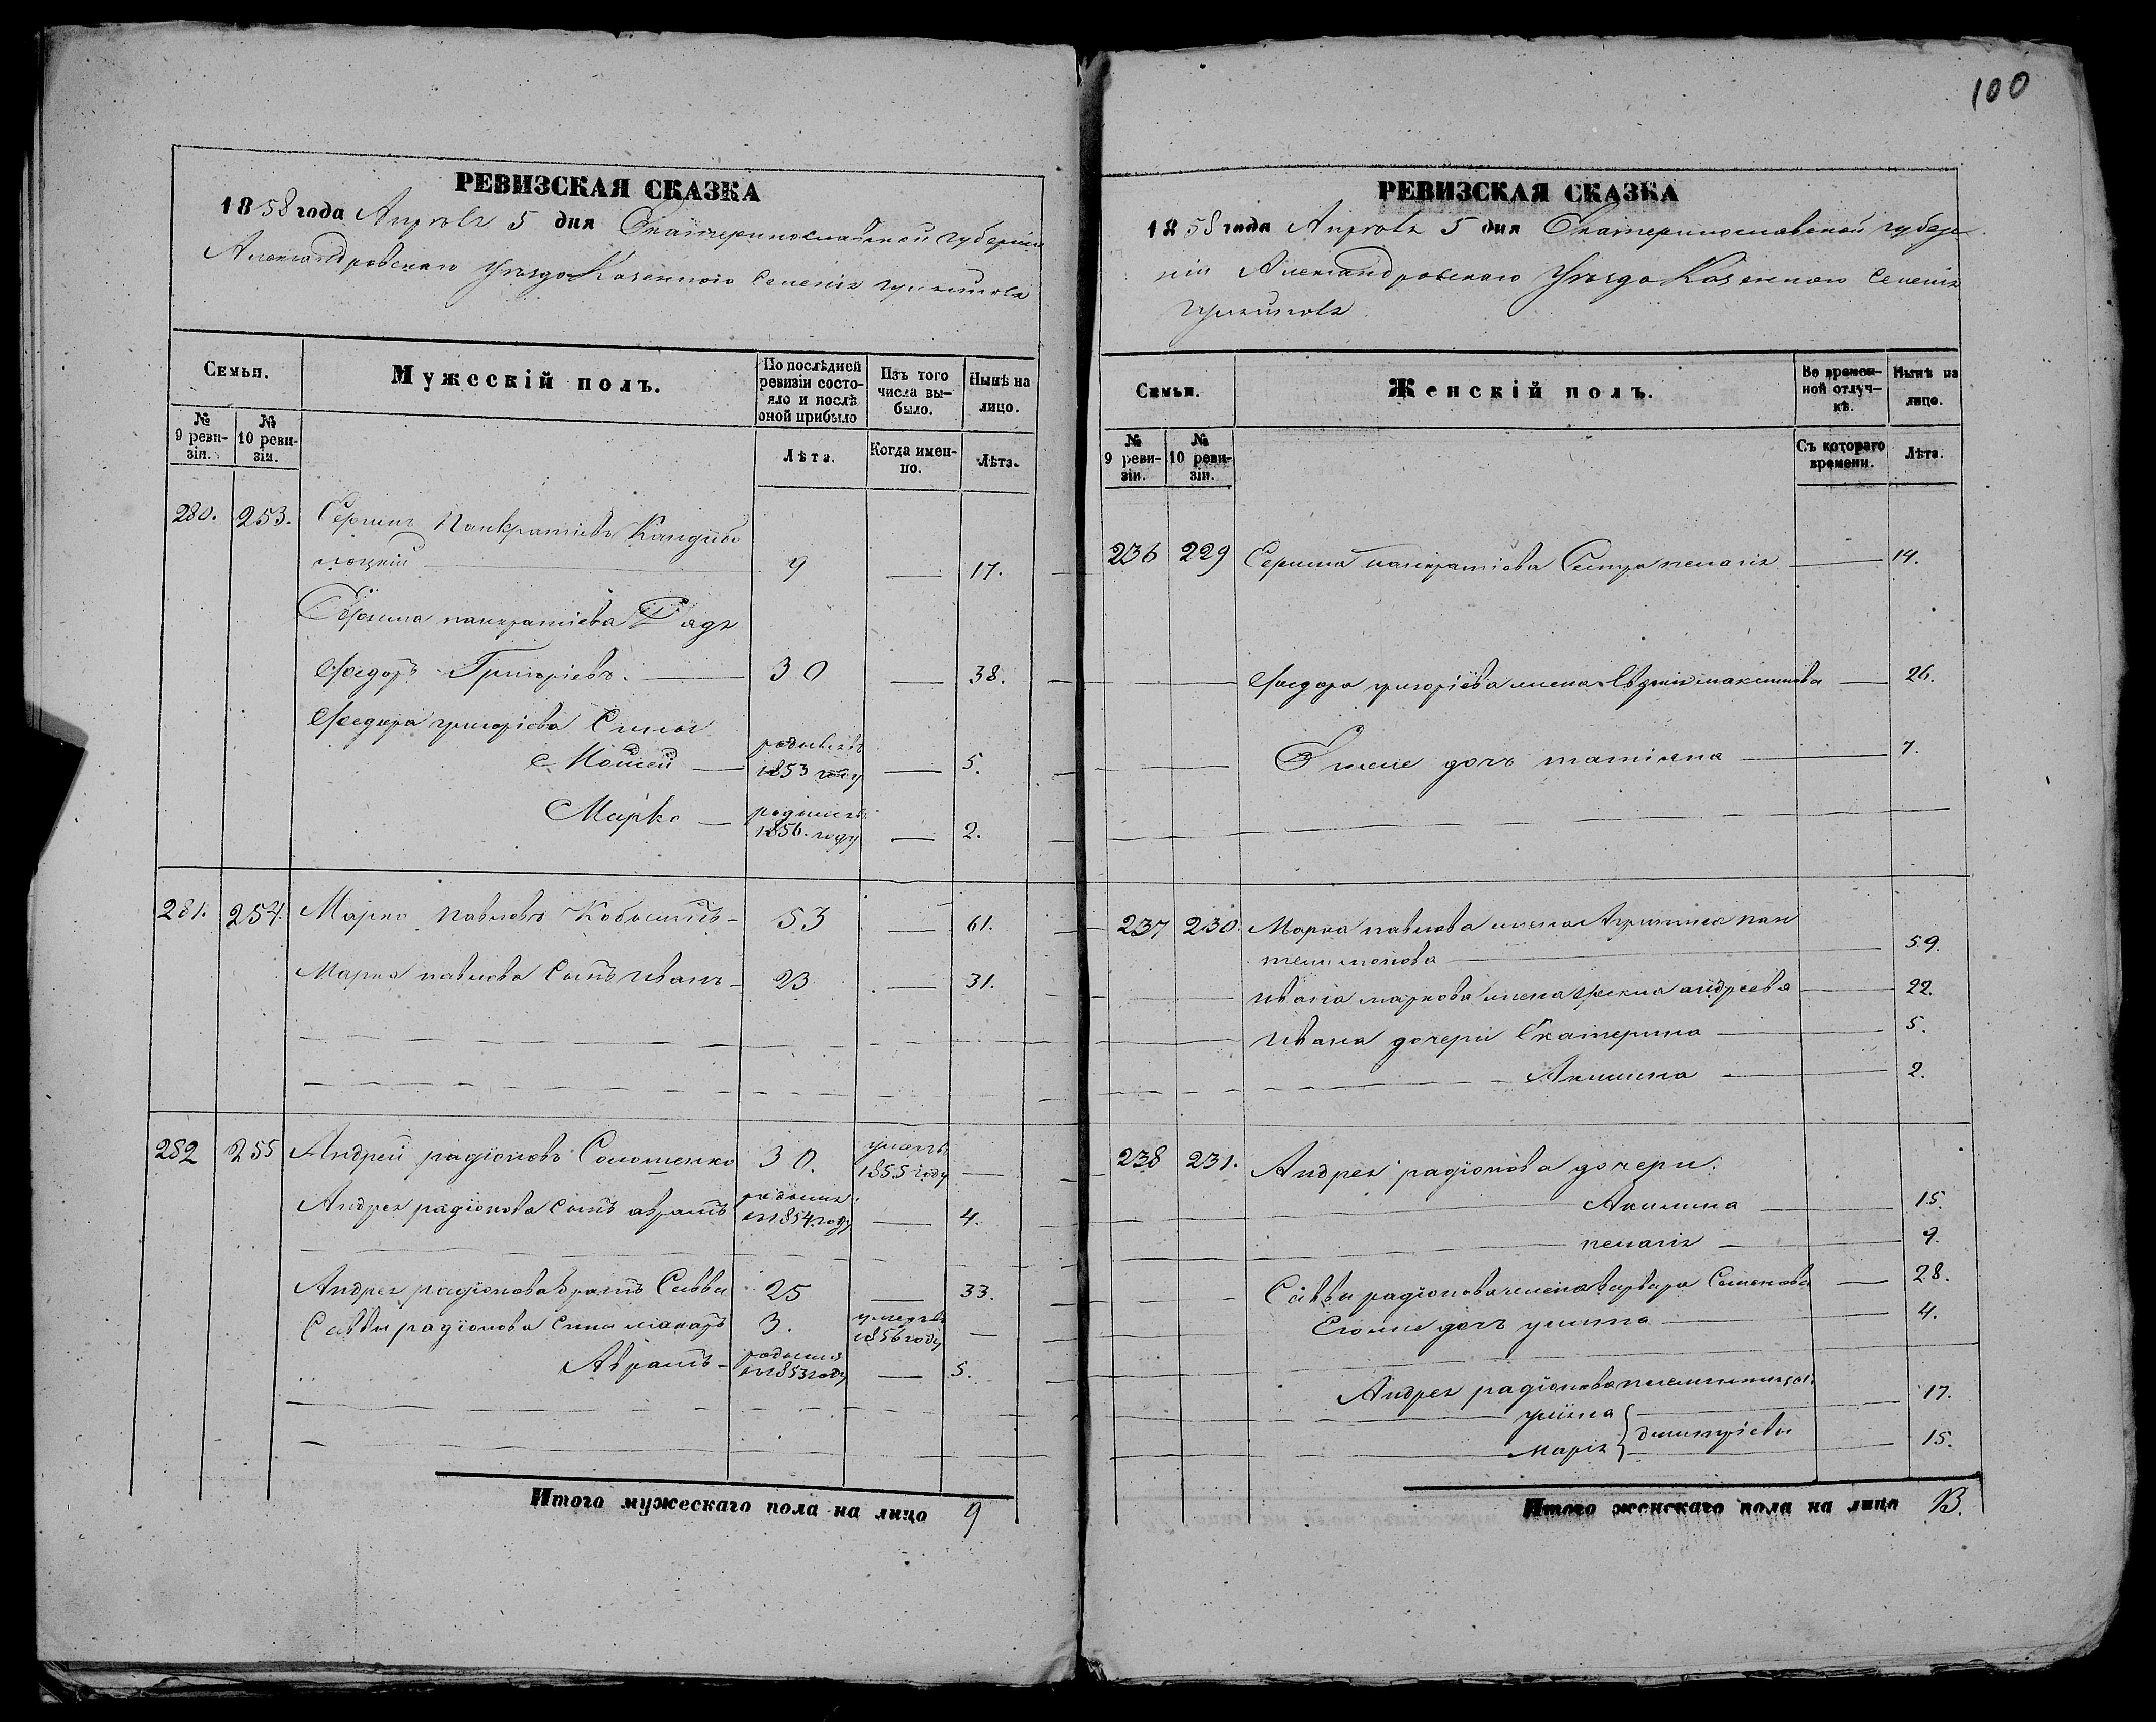 100
РЕВИЗСКАЯ СКАЗКА
1858 года Апреля 5 дня Екатеринославской губерніи
Александровскаго уезда Казеннаго селенія
Семьи.
Мужескій полъ.
По послѣдней ревизіи состояло и послѣ оной прибыло
Изъ того числа выбыло.
Нынѣ на лицо.
№ 9 ревизіи.
№ 10 ревизіи.
Лѣта.
Когда именно.
Лѣта.
280. 253. Панкратіевъ
9 — 17.
панкратіева дядя
Федоръ Григоріевъ. — 30 — 38.
Федора григоріева сыны
Мойсей — родился 1853 году — 5.
Марко — родился 1856 году — 2.
281. 254. Марко павловъ — 53 — 61.
Марка павлова сынъ иванъ — 23 — 31.
282 255 Андрей радіоновъ Соломенко 30. умеръ 1855 году —
Андрея радіонова сынъ аврамъ родился въ 1854 году — 4.
Андрея радіонова братъ Савва 25 — 33.
Саввы радіонова сыны макаръ 3. умеръ 1856 году —
Аврамъ — родился въ 1853 году — 5.
Итого мужескаго пола на лицо 9
РЕВИЗСКАЯ СКАЗКА
1858 года Апреля 5 дня Екатеринославской губер
ніи Александровскаго уезда Казеннаго селенія
Семьи.
Женскій полъ.
Во временной отлучкѣ.
Нынѣ на лицо.
№ 9 ревизіи.
№ 10 ревизіи.
Съ котораго времени.
Лѣта.
236 229 панкратіева сестра пелагія — 14.
Федора григоріева жена максимова — 26.
дочь татіяна — 7.
237 230. Марка павлова жена пан
телимонова — 59.
ивана маркова жена Фекла андреева — 22.
ивана дочери Екатерина — 5.
Акилина — 2.
238 231. Андрея радіонова дочери:
Акилина — 15.
пелагія — 9.
Саввы радіонова жена варвара Семенова — 28.
Его же дочь улияна — 4.
Андрея радіонова племянницы
17.
марія димитріевы — 15.
Итого женскаго пола на лицо 13.